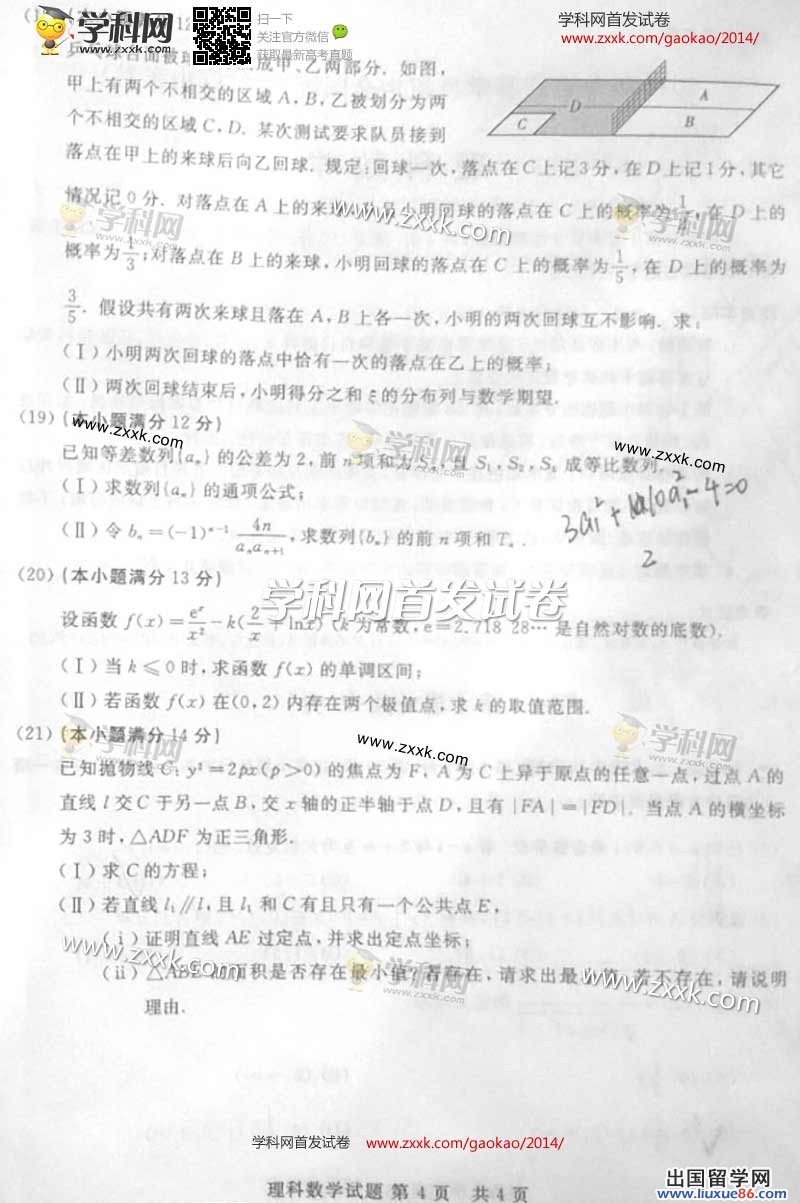 学科网
扫一下
关注官方微信
获取最新高考真题
学科网首发试卷
www.zxxk.com/gaokao/2014/
乒乓球台面被球网分成甲、乙两部分. 如图,
甲上有两个不相交的区域 A, B, 乙被划分为两
个不相交的区域 C, D. 某次测试要求队员接到
落点在甲上的来球后向乙回球. 规定:回球一次,落点在 C 上记 3 分,在 D 上记 1 分,其它
情况记 0 分. 对落点在 A 上的来球,队员小明回球的落点在 C 上的概率为 ,在 D 上的
概率为 1/3;对落点在 B 上的来球,小明回球的落点在 C 上的概率为 1/5,在 D 上的概率为
3/5. 假设共有两次来球且落在 A, B 上各一次,小明的两次回球互不影响. 求:
(Ⅰ)小明两次回球的落点中恰有一次的落点在乙上的概率;
(Ⅱ)两次回球结束后,小明得分之和 ξ 的分布列与数学期望.
D
A
B
C
学科网
www.zxxk.com
学科网
(19)(本小题满分 12 分)
已知等差数列{aₙ}的公差为 2,前 n 项和为 Sₙ,且 S₁, S₂, S₄ 成等比数列.
(Ⅰ)求数列{aₙ}的通项公式;
(Ⅱ)令 bₙ=(-1)ⁿ⁻¹ 4n/(aₙaₙ₊₁),求数列{bₙ}的前 n 项和 Tₙ.
www.zxxk.com
www.zxxk.com
(20)(本小题满分 13 分)
学科网首发试卷
设函数 f(x)=eˣ/x²-k(2/x+lnx)(k 为常数,e=2.718 28… 是自然对数的底数).
(Ⅰ)当 k⩽0 时,求函数 f(x) 的单调区间;
(Ⅱ)若函数 f(x) 在(0,2)内存在两个极值点,求 k 的取值范围.
(21)(本小题满分 14 分)
学科网
www.zxxk.com
学科网
已知抛物线 C: y²=2px(p>0)的焦点为 F, A 为 C 上异于原点的任意一点,过点 A 的
直线 l 交 C 于另一点 B,交 x 轴的正半轴于点 D,且有|FA|=|FD|. 当点 A 的横坐标
为 3 时,△ADF 为正三角形.
(Ⅰ)求 C 的方程;
(Ⅱ)若直线 l₁∥l,且 l₁ 和 C 有且只有一个公共点 E,
(ⅰ)证明直线 AE 过定点,并求出定点坐标;
(ⅱ)△ABE 的面积是否存在最小值?若存在,请求出最小值,若不存在,请说明
理由.
www.zxxk.com
学科网
www.zxxk.com
学科网首发试卷
www.zxxk.com/gaokao/2014/
理科数学试题 第 4 页 共 4 页
出国留学网
www.liuxue86.com